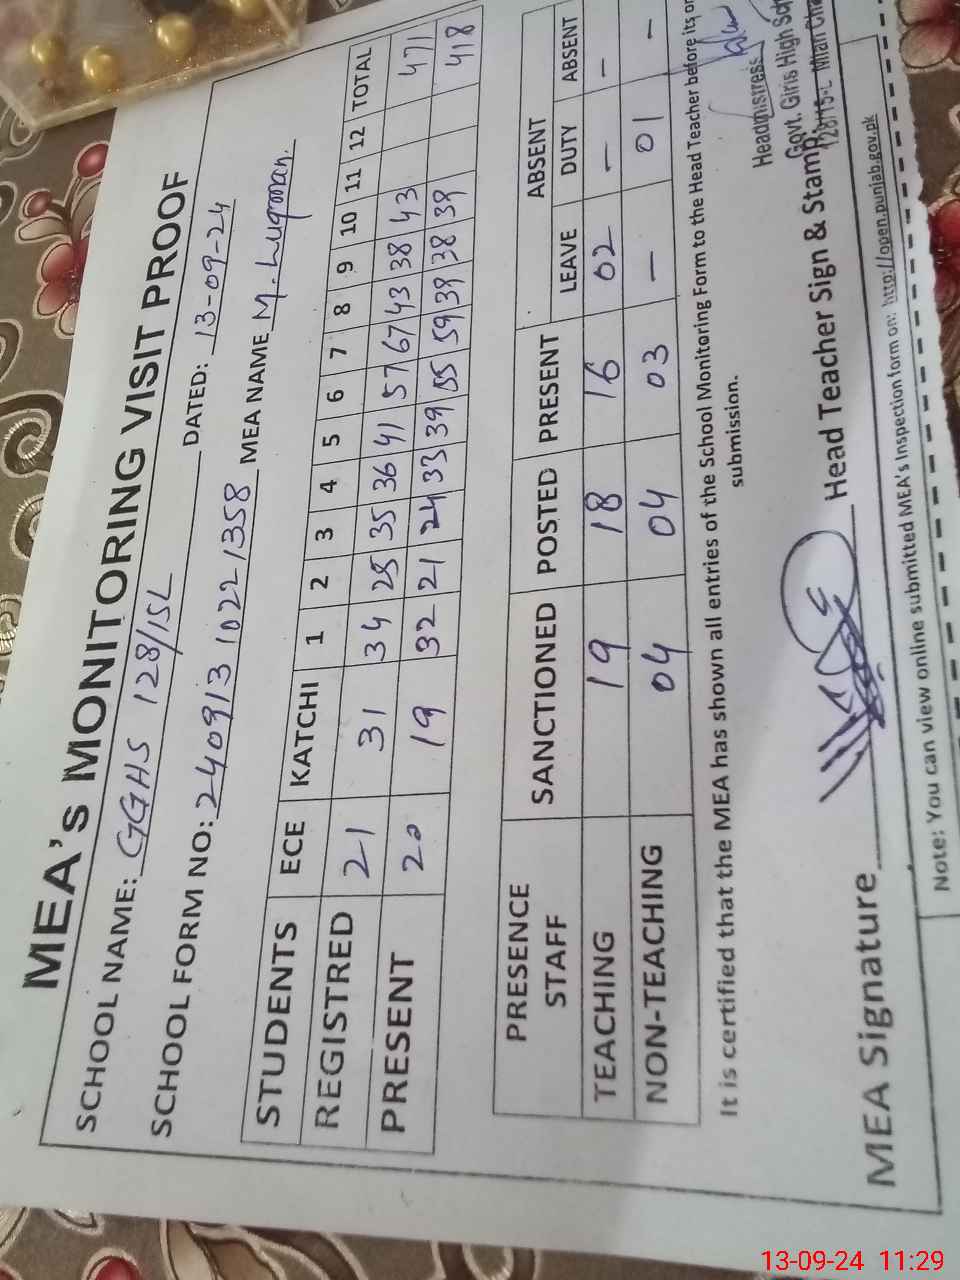 MEA's MONITORING VISIT PROOF
SCHOOL NAME: GGHS 128/15L DATED: 13-09-24
SCHOOL FORM NO: 240913 1022 1358 MEA NAME M. Luqman.
STUDENTS ECE KATCHI 1 2 3 4 5 6 7 8 9 10 11 12 TOTAL
REGISTRED 21 31 34 25 35 36 41 57 67 43 38 43 471
PRESENT 20 19 32 21 24 33 39 55 59 39 38 39 418
PRESENCE STAFF SANCTIONED POSTED PRESENT ABSENT
LEAVE DUTY ABSENT
TEACHING 19 18 16 02 — —
NON-TEACHING 04 04 03 — 01 —
It is certified that the MEA has shown all entries of the School Monitoring Form to the Head Teacher before its on
submission.
Headmistress
Govt. Girls High Sch
128/15-L Mian Cha
MEA Signature Head Teacher Sign & Stamp
Note: You can view online submitted MEA's Inspection form on: http://open.punjab.gov.pk
13-09-24 11:29